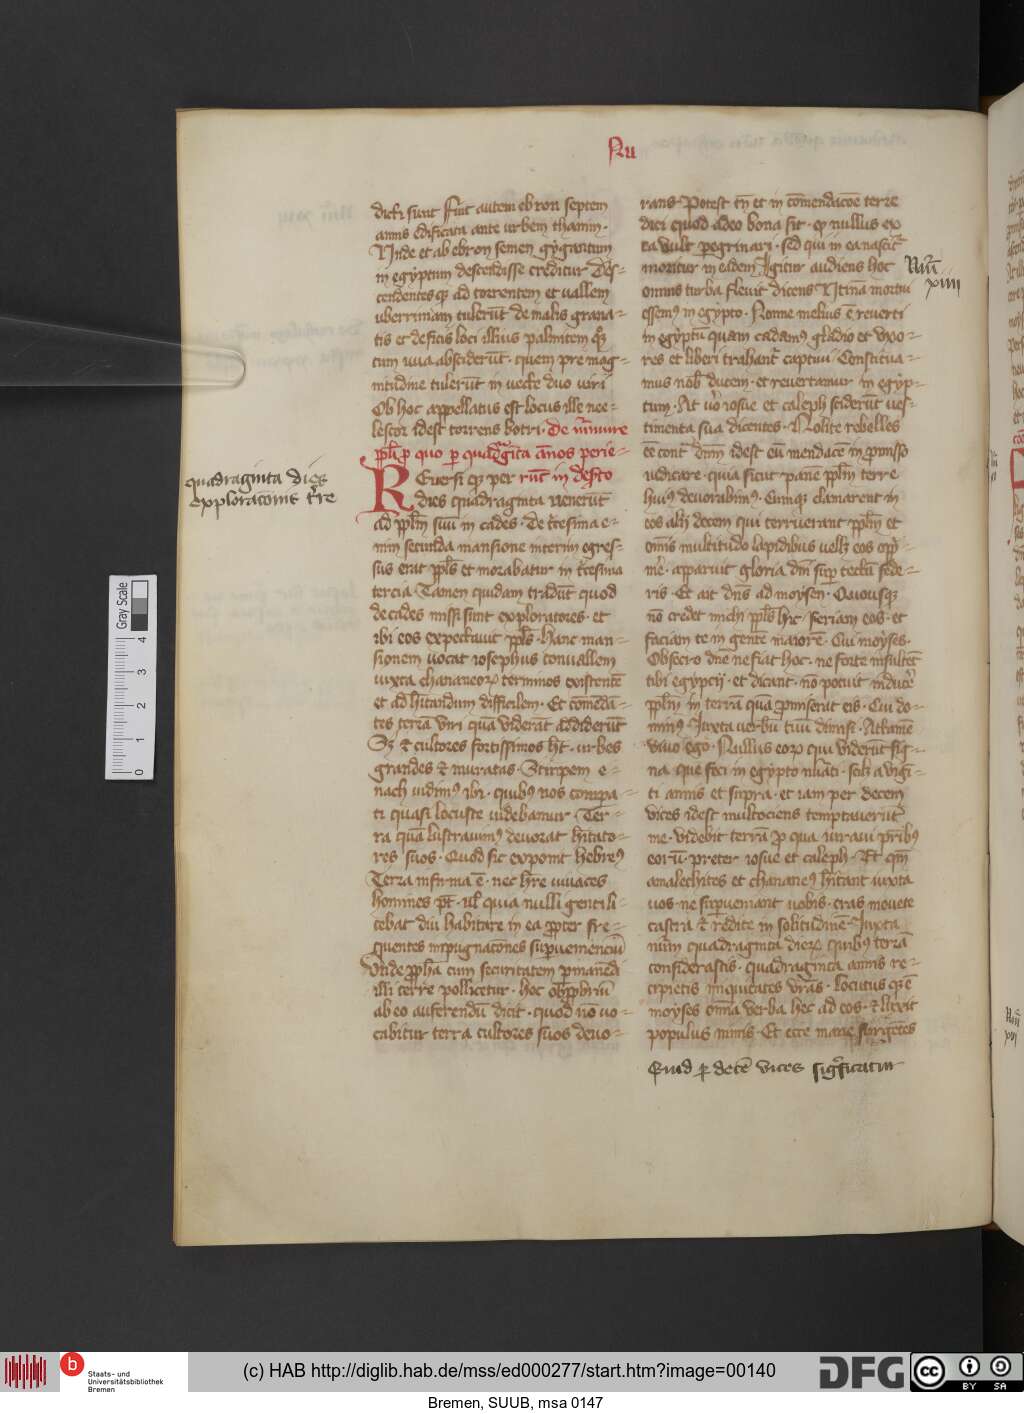 Nu
dicti sunt Fuit autem ebron septem
annis edificata ante urbem thanim ·
Unde et ab ebron semen gygantum
in egyptum descendisse creditur Des=
cendentes q3 ad torrentem et uallem
uberrimam tulerūt de malis grana=
tis et de ficis loci illius palmitem q3
cum uua absciderūt · quem pre mag=
nitudine tulerūt in uecte duo uiri
Ob hoc appellatus est locus ille nee=
lescor idest torrens botri · De murmure
ppli p quo p quadragīta ānos perie=
REuersi q3 per rūt in deserto
dies quadraginta uenerūt
ad pplm suū in cades · De tricesima e=
nim secunda mansione interim egres=
sus erat ppls et morabatur in tricesima
tercia Tamen quidam tradūt quod
de cades missi sunt exploratores · et
ibi eos expectauit ppls · Hanc man=
sionem uocat iosephus conuallem
iuxta chananeorum terminos existentē
et ad hītandum difficilem · Et comēdā=
tes terrā viri quā viderāt addiderūt
S3 et cultores fortissimos ht · urbes
grandes et muratas · Stirpem e=
nach uidimus ibi · quibus nos compa=
ti quasi locuste uidebamur · Ter=
ra quā lustrauimus deuorat hītato=
res suos · Quod sic exponit hebreus
Terra infirma ē · nec hr̄e uiuaces
homines pt̄ · ul̄ quia nulli genti li=
cebat diu habitare in ea propter fre=
quentes inpugnacōnes supueniencū
Unde ppha cum securitatem pmanēdi
illi terre pollicetur · hoc obpbriū
ab eo auferendū dicit · quod nō uo=
cabitur terra cultores suos deuo=
rans Potest tn̄ et in cōmendacōe terre
dici quod adeo bona sit · q nullus ex
ea vult pegrinari · sed qui in ea nascit
moritur in eadem Igitur audiens hoc
omnis turba fleuit dicens Utinā mortui
essemus in egypto · Nonne melius ē reuerti
in egyptū quam cadamus gladio et vxo=
res et liberi trahant captiui Constitua=
mus nob ducem · et reuertamur in egyp=
tum · At vo iosue et caleph sciderūt ves=
timenta sua dicentes · Nolite rebelles
ēē cont dnm idest eū mendacē in pmisso
iudicare · quia sicut panē pplm terre
huius deuorabimus · Cumq3 clamarent in
eos alij decem qui terruerant pplm et
omīs multitudo lapidibus vellet eos opp=
mē · apparuit gloria dni sup tectū fede=
ris · Et ait dns ad moysen · Quousq3
nō credet michi ppls hic feriam eos · et
faciam te in gentē maiorē · Cui moyses ·
Obsecro dne ne fiat hoc · ne forte insultēt
tibi egypcij · et dicant · nō potuit inducē
pplm in terrā quā pmiserat eis · Cui do=
minus Iuxta verbū tuū dimisi · Attamē
viuo ego · Nullus eorum qui viderūt sig=
na que feci in egypto nūāti · scilz a vigī=
ti annis et supra · et iam per decem
vices idest multociens temptauerūt
me · videbit terrā p qua iuraui pribus
eorū · preter iosue et caleph · Et qm
amalechites et chananeus hītant iuxta
uos · ne supueniant uobis · cras mouete
castra et redite in solitudinē · Iuxta
num quadraginta dierum quibus terrā
considerastis · quadraginta annis re=
cipietis iniquitates vrās · Locutus q3 ē
moyses omīa verba hec ad eos · et luxit
populus nimis · Et ecce mane surgētes
Quid p decē vices significatur
Nūi
xiiii
quadraginta dies
exploracionis tre
Gray Scale
4
3
2
1
0
Staats- und
Universitätsbibliothek
Bremen
(c) HAB http://diglib.hab.de/mss/ed000277/start.htm?image=00140
DFG
cc
BY SA
Bremen, SUUB, msa 0147